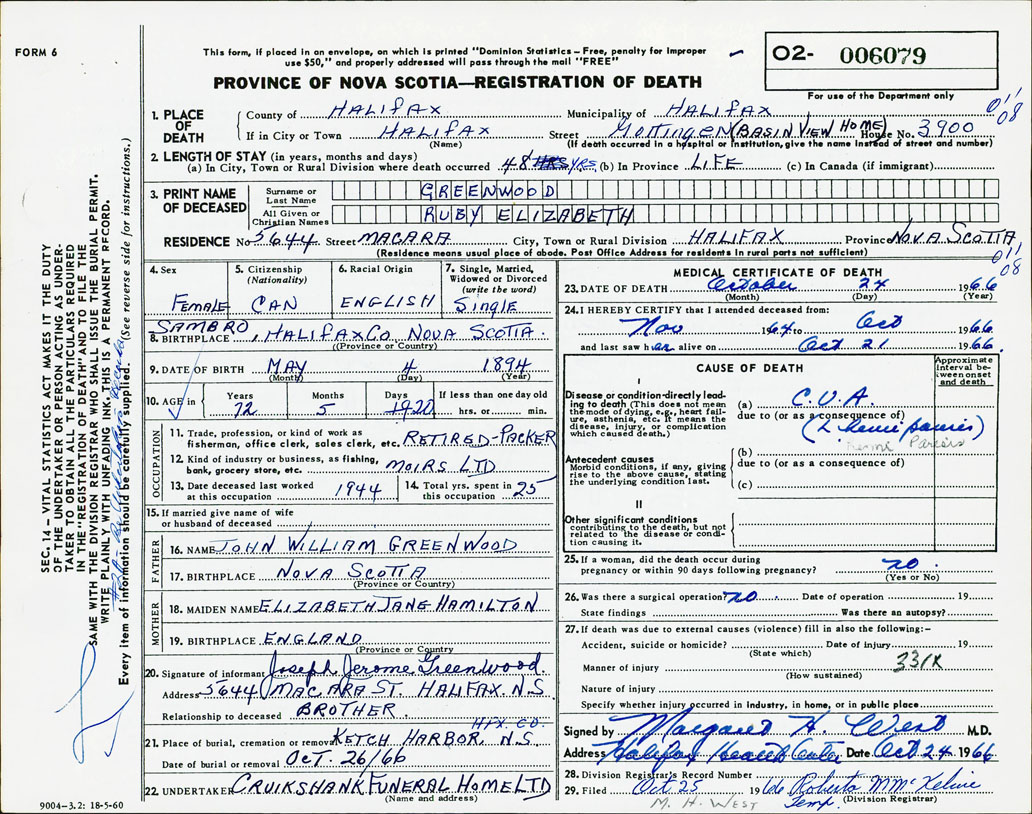 FORM 6
This form, if placed in an envelope, on which is printed "Dominion Statistics – Free, penalty for improper
use $50," and properly addressed will pass through the mail "FREE"
PROVINCE OF NOVA SCOTIA—REGISTRATION OF DEATH
O2- 006079
For use of the Department only
011
08
1. PLACE OF DEATH
County of HALIFAX Municipality of HALIFAX
If in City or Town HALIFAX Street Gottingen (BASIN VIEW HOME) House No. 3900
(Name) (If death occurred in a hospital or institution, give the name instead of street and number)
2. LENGTH OF STAY (in years, months and days)
(a) In City, Town or Rural Division where death occurred 48 HRS YRS (b) In Province LIFE (c) In Canada (if immigrant)
3. PRINT NAME OF DECEASED
Surname or Last Name GREENWOOD
All Given or Christian Names RUBY ELIZABETH
RESIDENCE No 5644 Street MACARA City, Town or Rural Division HALIFAX Province NOVA SCOTIA
(Residence means usual place of abode. Post Office Address for residents in rural parts not sufficient)
011
08
4. Sex FEMALE
5. Citizenship (Nationality) CAN
6. Racial Origin ENGLISH
7. Single, Married, Widowed or Divorced (write the word) Single
8. BIRTHPLACE SAMBRO, HALIFAX CO. NOVA SCOTIA.
(Province or Country)
9. DATE OF BIRTH MAY 4 1894
(Month) (Day) (Year)
10. AGE in Years 72 Months 5 Days 19 20 If less than one day old hrs. or min.
OCCUPATION
11. Trade, profession, or kind of work as fisherman, office clerk, sales clerk, etc. RETIRED-PACKER
12. Kind of industry or business, as fishing, bank, grocery store, etc. MOIRS LTD
13. Date deceased last worked at this occupation 1944
14. Total yrs. spent in this occupation 25
15. If married give name of wife or husband of deceased
FATHER
16. NAME JOHN WILLIAM GREENWOOD
17. BIRTHPLACE NOVA SCOTIA
(Province or Country)
MOTHER
18. MAIDEN NAME ELIZABETH JANE HAMILTON
19. BIRTHPLACE ENGLAND
(Province or Country)
20. Signature of informant Joseph Jerome Greenwood.
Address 5644 MACARA ST. HALIFAX. N.S
Relationship to deceased BROTHER
HFX. CO.
21. Place of burial, cremation or removal KETCH HARBOR, N.S.
Date of burial or removal OCT. 26/66
22. UNDERTAKER CRUIKSHANK FUNERAL HOME LTD
(Name and address)
MEDICAL CERTIFICATE OF DEATH
23. DATE OF DEATH October 24 1966
(Month) (Day) (Year)
24. I HEREBY CERTIFY that I attended deceased from:
Nov 1964 to Oct 1966
and last saw her alive on Oct 21 1966.
CAUSE OF DEATH
Approximate Interval between onset and death
I
Disease or condition directly leading to death (This does not mean the mode of dying, e.g., heart failure, asthenia, etc. It means the disease, injury, or complication which caused death.)
(a) C.V.A.
due to (or as a consequence of)
Antecedent causes
Morbid conditions, if any, giving rise to the above cause, stating the underlying condition last.
(b)
due to (or as a consequence of)
(c)
II
Other significant conditions contributing to the death, but not related to the disease or condition causing it.
25. If a woman, did the death occur during pregnancy or within 90 days following pregnancy? no.
(Yes or No)
26. Was there a surgical operation? no. Date of operation 19
State findings Was there an autopsy?
27. If death was due to external causes (violence) fill in also the following:–
Accident, suicide or homicide? Date of injury 19
(State which)
Manner of injury 331X
(How sustained)
Nature of injury
Specify whether injury occurred in industry, in home, or in public place
Signed by Margaret H. West M.D.
Address Halifax Health Center Date Oct 24 1966
28. Division Registrar's Record Number
29. Filed Oct 25 1966 Roberta M McKelvie
M. H. WEST Temp. (Division Registrar)
SEC. 14 – VITAL STATISTICS ACT MAKES IT THE DUTY
OF THE UNDERTAKER OR PERSON ACTING AS UNDER-
TAKER TO OBTAIN ALL THE PARTICULARS REQUIRED
IN THE "REGISTRATION OF DEATH" AND TO FILE THE
SAME WITH THE DIVISION REGISTRAR WHO SHALL ISSUE THE BURIAL PERMIT.
WRITE PLAINLY WITH UNFADING INK. THIS IS A PERMANENT RECORD.
Every item of information should be carefully supplied. (See reverse side for instructions.)
9004–3.2: 18-5-60